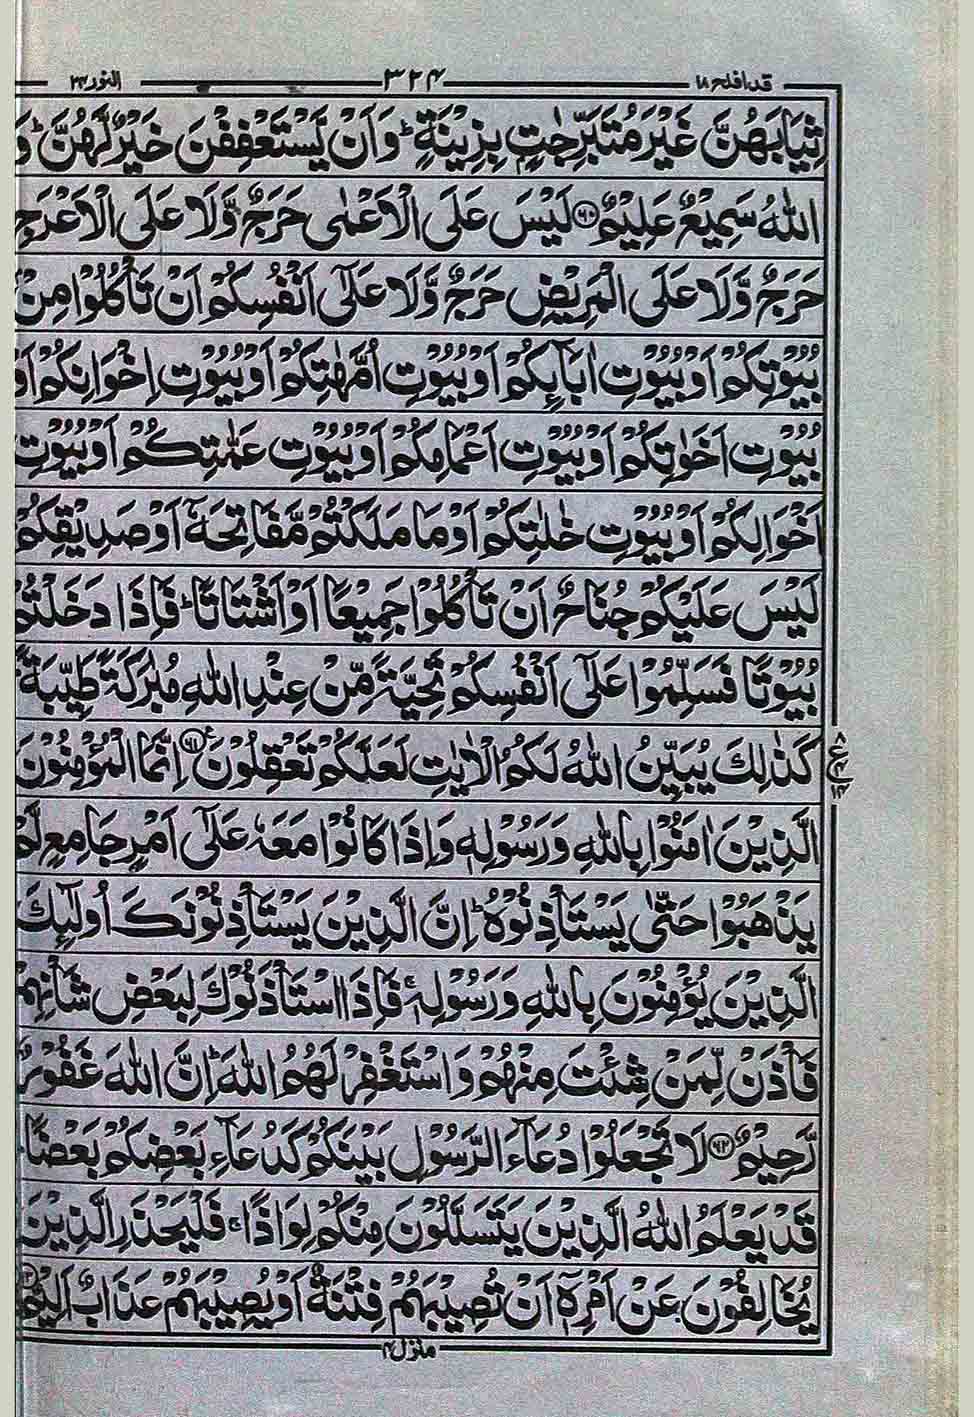 قد افلح ۱۸ ۳۲۴ النور ۲۴
ثِيَابَهُنَّ غَيْرَ مُتَبَرِّجٰتٍۭ بِزِيْنَةٍ ؕ وَاَنْ يَّسْتَعْفِفْنَ خَيْرٌ لَّهُنَّ ؕ وَ
اللّٰهُ سَمِيْعٌ عَلِيْمٌ ۶۰ لَيْسَ عَلَى الْاَعْمٰى حَرَجٌ وَّلَا عَلَى الْاَعْرَجِ
حَرَجٌ وَّلَا عَلَى الْمَرِيْضِ حَرَجٌ وَّلَا عَلٰٓى اَنْفُسِكُمْ اَنْ تَاْكُلُوْا مِنْۢ
بُيُوْتِكُمْ اَوْ بُيُوْتِ اٰبَآىِٕكُمْ اَوْ بُيُوْتِ اُمَّهٰتِكُمْ اَوْ بُيُوْتِ اِخْوَانِكُمْ اَوْ
بُيُوْتِ اَخَوٰتِكُمْ اَوْ بُيُوْتِ اَعْمَامِكُمْ اَوْ بُيُوْتِ عَمّٰتِكُمْ اَوْ بُيُوْتِ
اَخْوَالِكُمْ اَوْ بُيُوْتِ خٰلٰتِكُمْ اَوْ مَا مَلَكْتُمْ مَّفَاتِحَهٗۤ اَوْ صَدِيْقِكُمْ
لَيْسَ عَلَيْكُمْ جُنَاحٌ اَنْ تَاْكُلُوْا جَمِيْعًا اَوْ اَشْتَاتًا ؕ فَاِذَا دَخَلْتُمْ
بُيُوْتًا فَسَلِّمُوْا عَلٰٓى اَنْفُسِكُمْ تَحِيَّةً مِّنْ عِنْدِ اللّٰهِ مُبٰرَكَةً طَيِّبَةً ؕ
كَذٰلِكَ يُبَيِّنُ اللّٰهُ لَكُمُ الْاٰيٰتِ لَعَلَّكُمْ تَعْقِلُوْنَ ۶۱ اِنَّمَا الْمُؤْمِنُوْنَ
۸ ع ۴ ۱۴
الَّذِيْنَ اٰمَنُوْا بِاللّٰهِ وَرَسُوْلِهٖ وَاِذَا كَانُوْا مَعَهٗ عَلٰٓى اَمْرٍ جَامِعٍ لَّمْ
يَذْهَبُوْا حَتّٰى يَسْتَاْذِنُوْهُ ؕ اِنَّ الَّذِيْنَ يَسْتَاْذِنُوْنَكَ اُولٰٓىِٕكَ
الَّذِيْنَ يُؤْمِنُوْنَ بِاللّٰهِ وَرَسُوْلِهٖ ۚ فَاِذَا اسْتَاْذَنُوْكَ لِبَعْضِ شَاْنِهِمْ
فَاْذَنْ لِّمَنْ شِئْتَ مِنْهُمْ وَاسْتَغْفِرْ لَهُمُ اللّٰهَ ؕ اِنَّ اللّٰهَ غَفُوْرٌ
رَّحِيْمٌ ۶۲ لَا تَجْعَلُوْا دُعَآءَ الرَّسُوْلِ بَيْنَكُمْ كَدُعَآءِ بَعْضِكُمْ بَعْضًا ؕ
قَدْ يَعْلَمُ اللّٰهُ الَّذِيْنَ يَتَسَلَّلُوْنَ مِنْكُمْ لِوَاذًا ۚ فَلْيَحْذَرِ الَّذِيْنَ
يُخَالِفُوْنَ عَنْ اَمْرِهٖۤ اَنْ تُصِيْبَهُمْ فِتْنَةٌ اَوْ يُصِيْبَهُمْ عَذَابٌ اَلِيْمٌ
منزل ۴